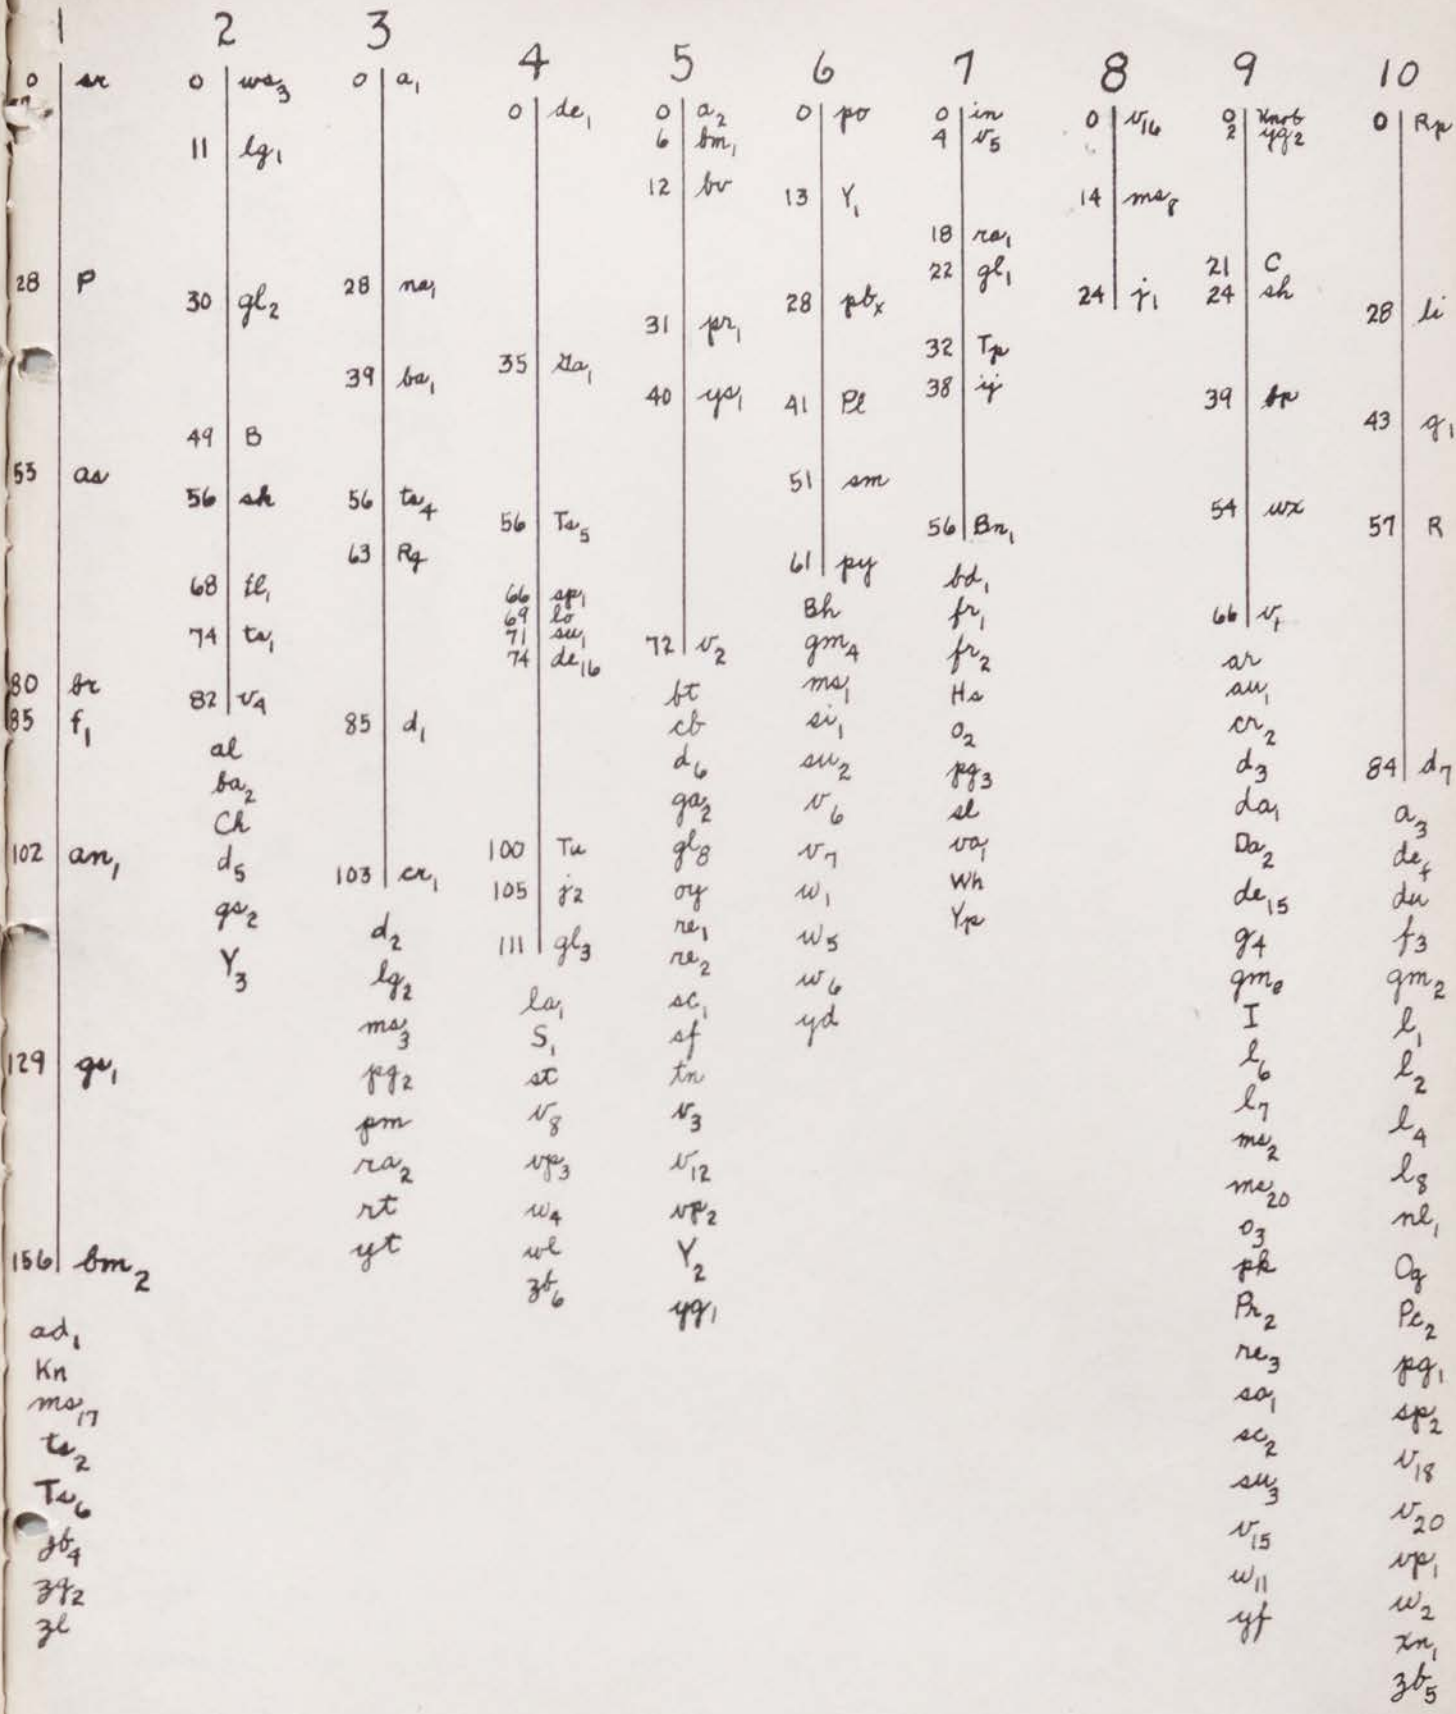 1
0 sr
28 P
55 as
80 br
85 f1
102 an1
129 gs1
156 bm2
ad1
Kn
ms17
ts2
Ts6
zb4
zg2
zl
2
0 ws3
11 lg1
30 gl2
49 B
56 sk
68 tl1
74 ts1
82 v4
al
ba2
Ch
d5
gs2
Y3
3
0 a1
28 na1
39 ba1
56 ts4
63 Rg
85 d1
103 cr1
d2
lg2
ms3
pg2
pm
ra2
rt
yt
4
0 de1
35 Ga1
56 Ts5
66 sp1
69 lo
71 su1
74 de16
100 Tu
105 j2
111 gl3
la1
S1
st
v8
vp3
w4
wl
zb6
5
0 a2
6 bm1
12 bv
31 pr1
40 ys1
72 v2
bt
cb
d6
ga2
gl8
oy
re1
re2
sc1
sf
tn
v3
v12
vp2
Y2
yg1
6
0 po
13 Y1
28 pbx
41 Pl
51 sm
61 py
Bh
gm4
ms1
si1
su2
v6
v7
w1
w5
w6
yd
7
0 in
4 v5
18 ra1
22 gl1
32 Tp
38 ij
56 Bn1
bd1
fr1
fr2
Hs
o2
pg3
sl
va1
Wh
Yp
8
0 v16
14 ms8
24 j1
9
0 Knob
2 yg2
21 C
24 sh
39 bp
54 wx
66 v1
ar
au1
cr2
d3
da1
Da2
de15
g4
gm8
I
l6
l7
ms2
ms20
o3
pk
Pr2
re3
sa1
sc2
su3
v15
w11
yf
10
0 Rp
28 li
43 g1
57 R
84 d7
a3
de4
du
f3
gm2
l1
l2
l4
l8
nl1
Og
Pc2
pg1
sp2
v18
v20
vp1
w2
xn1
zb5